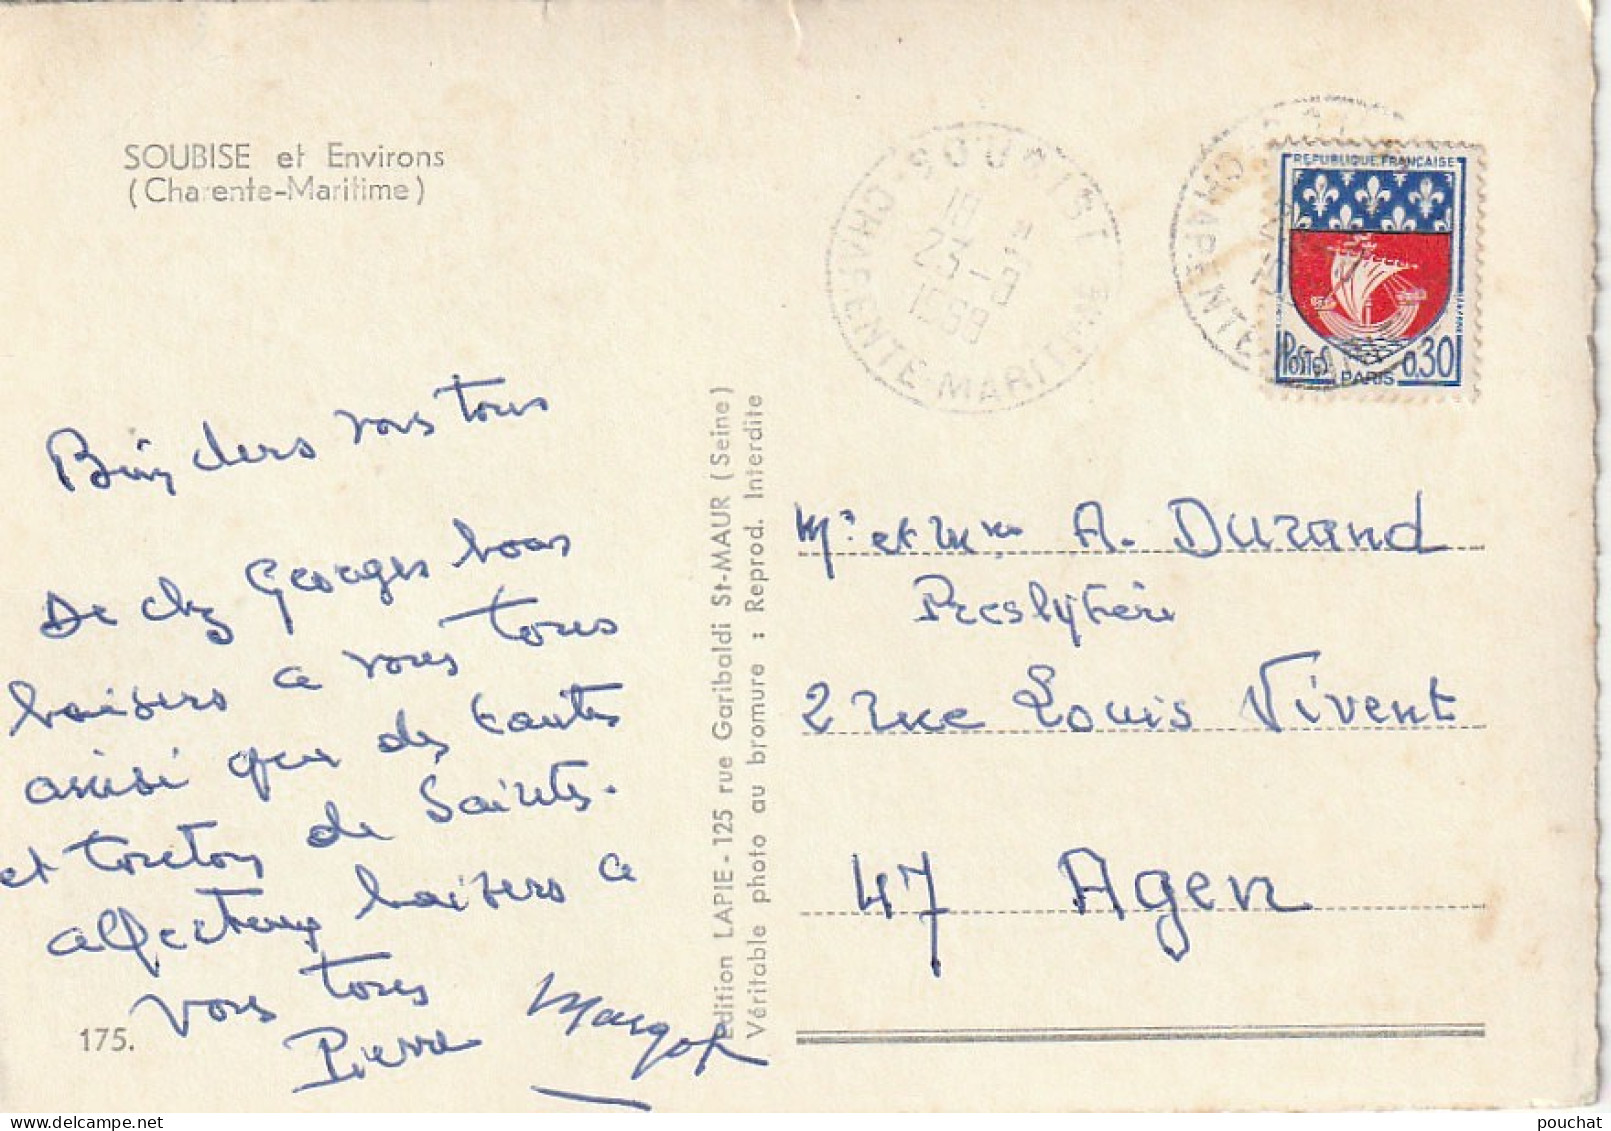 SOUBISE et Environs
(Charente-Maritime)
SOUBISE
CHARENTE-MARITIME
18
23-9
REPUBLIQUE FRANÇAISE
POSTES
0,30
PARIS
vous tous
De chez Georges bons
baisers a vous tous
ainsi que des tantes
et tonton de Saintes.
affectueux baisers a
vous tous
Pierre Margot
175.
Edition LAPIE - 125 rue Garibaldi St-MAUR (Seine)
Véritable photo au bromure : Reprod. Interdite
Mr et Mme A. Durand
Presbytère
2 rue Louis Vivent
47 Agen
pouchat